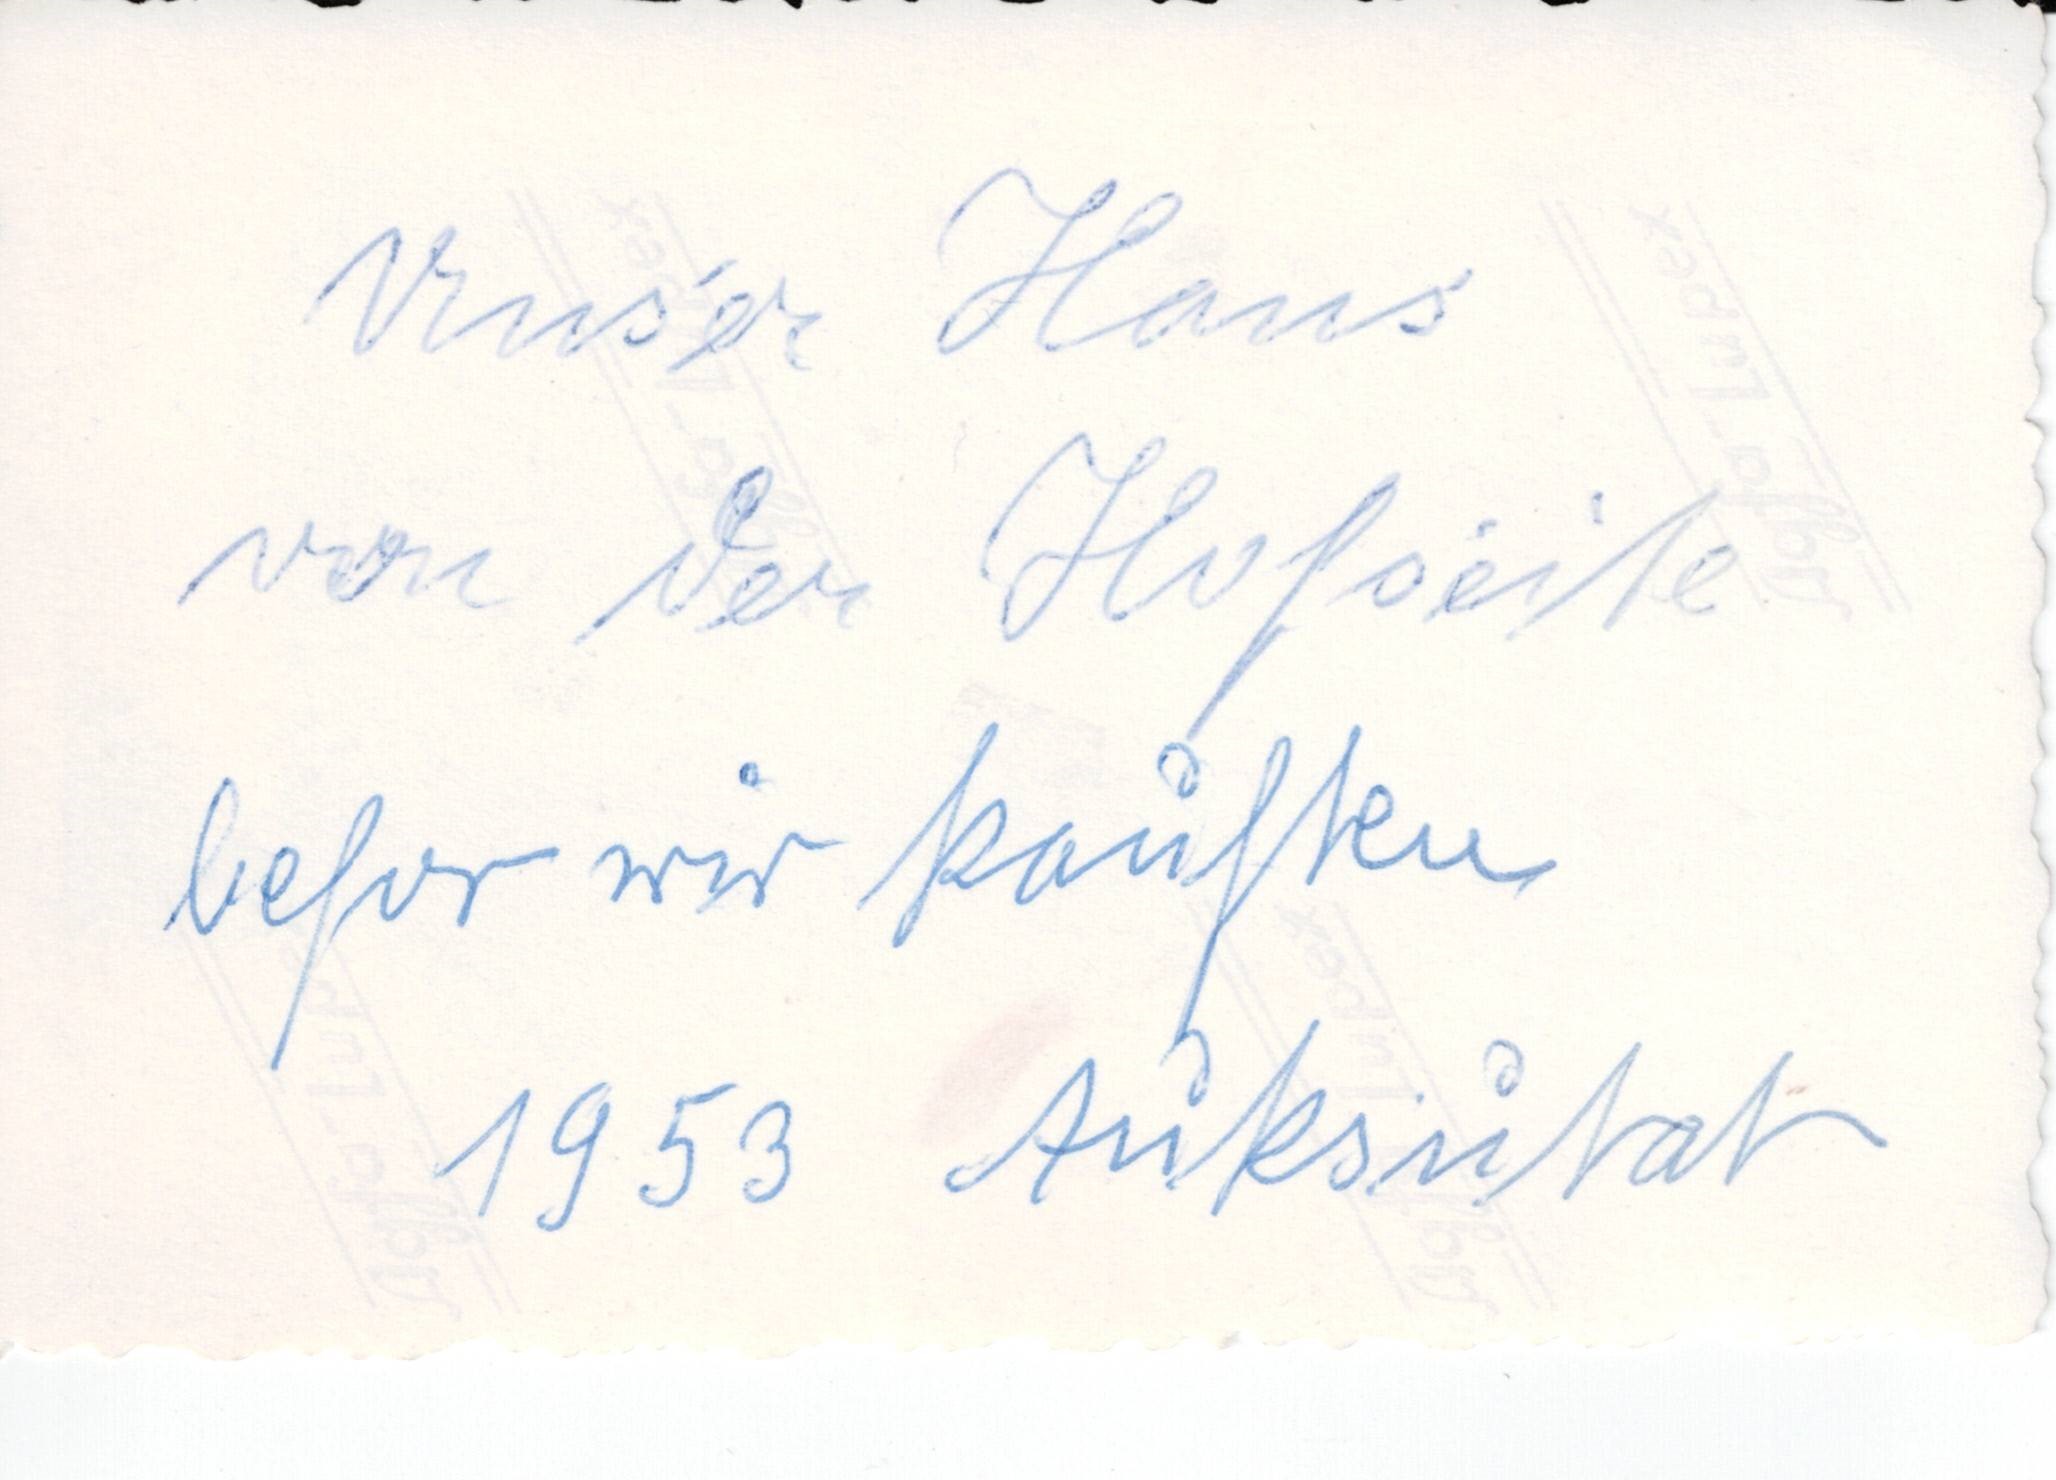 Unser Haus
von der Hofseite
befor wir kauften
1953 Auksutat
Agfa-Lupex
Agfa-Lupex
Agfa-Lupex
Agfa-Lupex